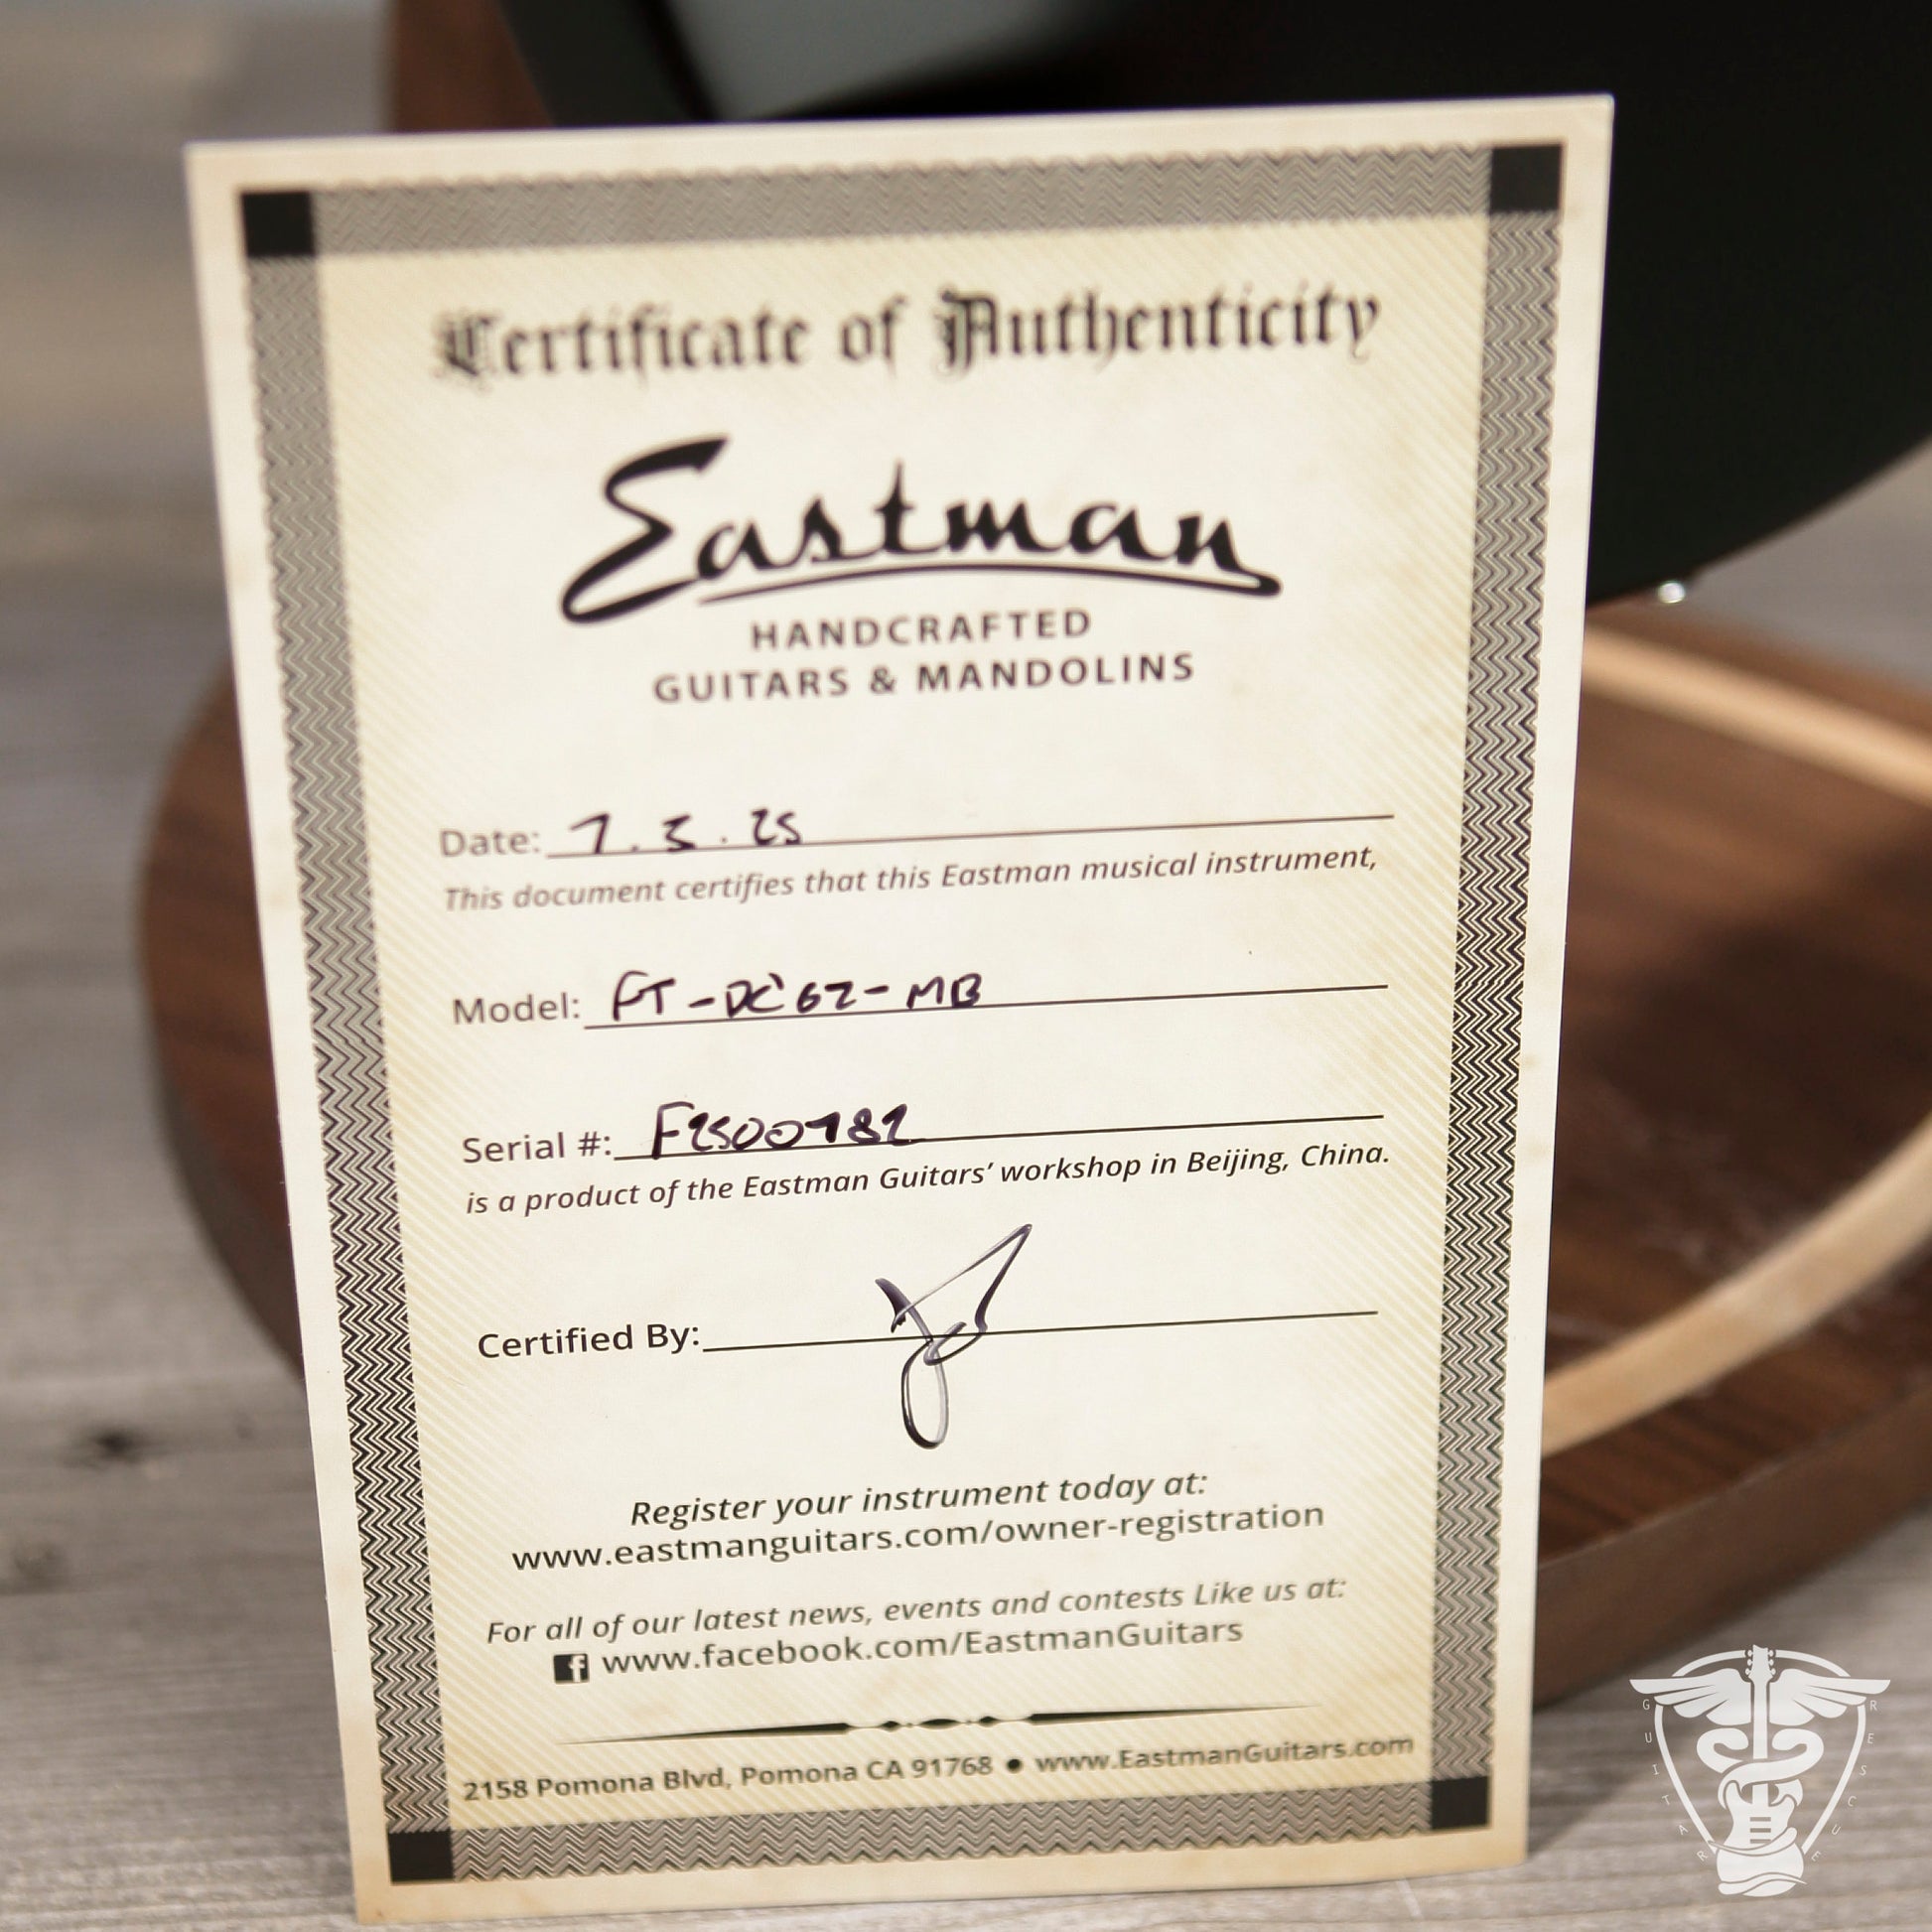 Certificate of Authenticity
Eastman
HANDCRAFTED
GUITARS & MANDOLINS
Date: 7.3.25
This document certifies that this Eastman musical instrument,
Model: FT-DC62-MB
Serial #: F2500782
is a product of the Eastman Guitars' workshop in Beijing, China.
Certified By:
Register your instrument today at:
www.eastmanguitars.com/owner-registration
For all of our latest news, events and contests Like us at:
f www.facebook.com/EastmanGuitars
2158 Pomona Blvd, Pomona CA 91768 ● www.EastmanGuitars.com
GUITAR RESCUE